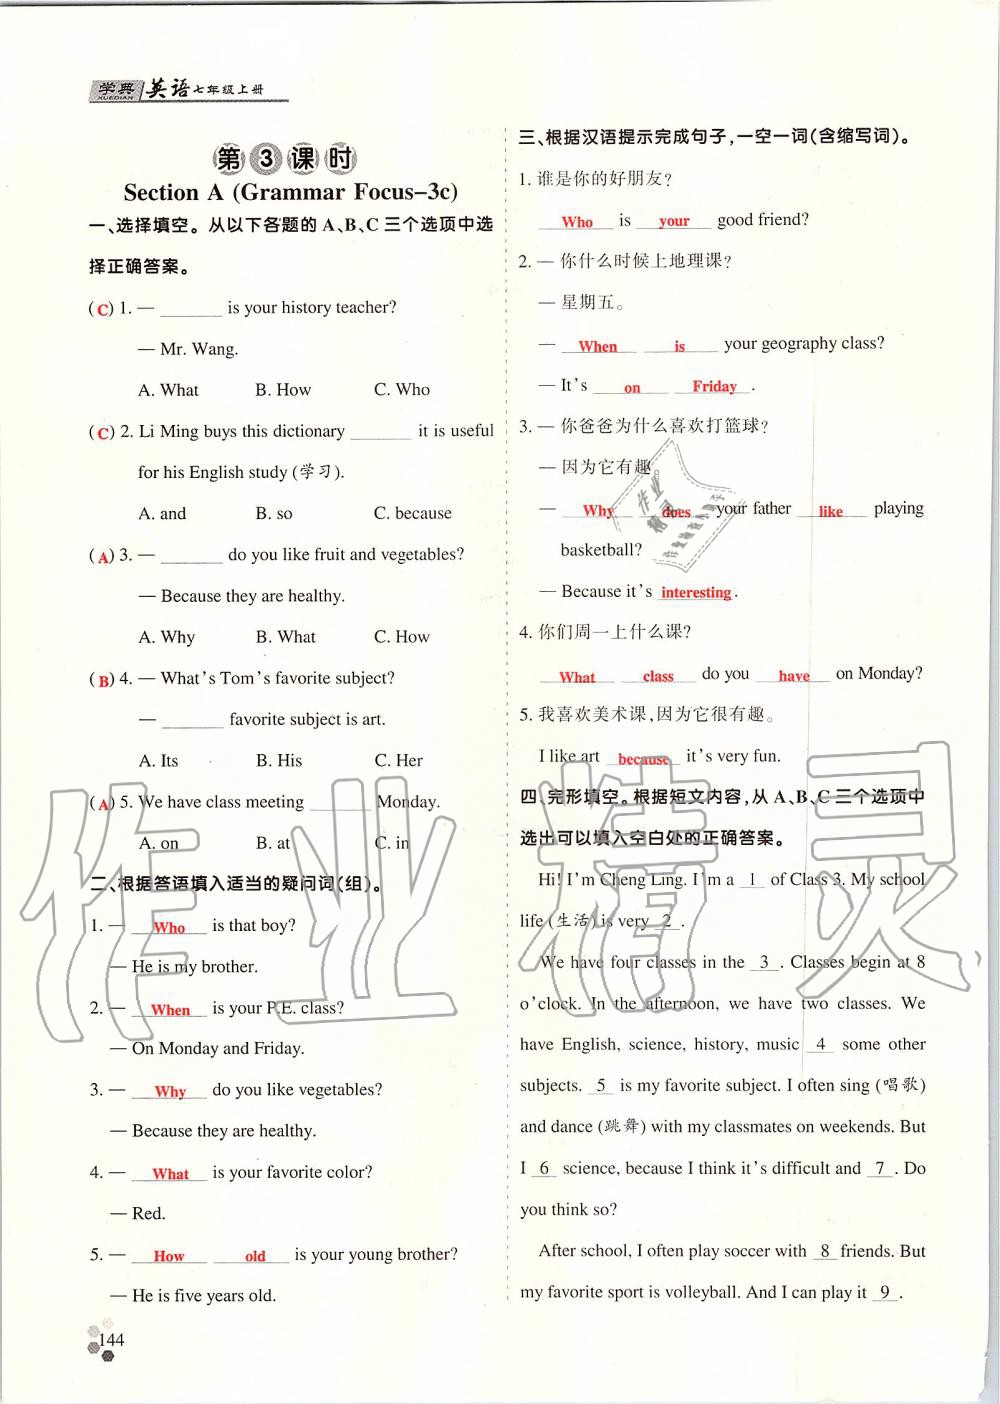 学典 XUEDIAN 英语七年级上册
第3课时
Section A (Grammar Focus-3c)
一、选择填空。从以下各题的 A、B、C 三个选项中选
择正确答案。
( C ) 1. — ______ is your history teacher?
— Mr. Wang.
A. What B. How C. Who
( C ) 2. Li Ming buys this dictionary ______ it is useful
for his English study (学习).
A. and B. so C. because
( A ) 3. — ______ do you like fruit and vegetables?
— Because they are healthy.
A. Why B. What C. How
( B ) 4. — What's Tom's favorite subject?
— ______ favorite subject is art.
A. Its B. His C. Her
( A ) 5. We have class meeting ______ Monday.
A. on B. at C. in
二、根据答语填入适当的疑问词(组)。
1. — Who is that boy?
— He is my brother.
2. — When is your P.E. class?
— On Monday and Friday.
3. — Why do you like vegetables?
— Because they are healthy.
4. — What is your favorite color?
— Red.
5. — How old is your young brother?
— He is five years old.
144
三、根据汉语提示完成句子,一空一词(含缩写词)。
1. 谁是你的好朋友?
Who is your good friend?
2. — 你什么时候上地理课?
— 星期五。
— When is your geography class?
— It's on Friday.
3. — 你爸爸为什么喜欢打篮球?
— 因为它有趣。
— Why does your father like playing
basketball?
— Because it's interesting.
4. 你们周一上什么课?
What class do you have on Monday?
5. 我喜欢美术课,因为它很有趣。
I like art because it's very fun.
四、完形填空。根据短文内容,从 A、B、C 三个选项中
选出可以填入空白处的正确答案。
Hi! I'm Cheng Ling. I'm a 1 of Class 3. My school
life (生活) is very 2 .
We have four classes in the 3 . Classes begin at 8
o'clock. In the afternoon, we have two classes. We
have English, science, history, music 4 some other
subjects. 5 is my favorite subject. I often sing (唱歌)
and dance (跳舞) with my classmates on weekends. But
I 6 science, because I think it's difficult and 7 . Do
you think so?
After school, I often play soccer with 8 friends. But
my favorite sport is volleyball. And I can play it 9 .
作业精灵